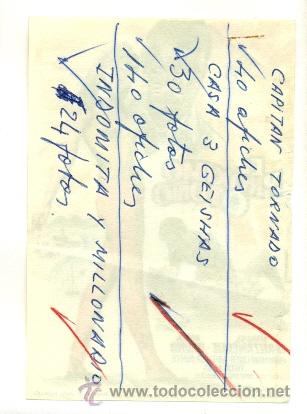 CAPITAN TORNADO
√40 afiches
CASA 3 GEISHAS
√30 fotos
√140 afiches
INDOMITA Y MILLONARIO
√24 fotos
www.todocoleccion.net